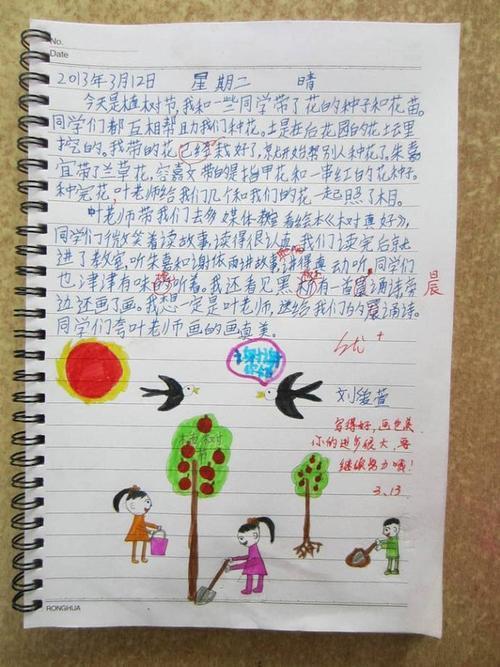 No.
Date
2013年3月12日 星期二 晴
今天是植树节,我和一些同学带了花的种子和花苗。
同学们都互相帮助我们种花。土是在后花园的花土云里
挖的。我带的花已经栽好了,就开始帮别人种花了。朱嘉
宜带了兰草花,容嘉文带的是指甲花和一串红的花种子。
种完花,叶老师给我们几个和我们的花一起照了相。
叶老师带我们去多媒体教室看绘本《树真好》,
同学们微笑着读故事,读得很认真。我们读完后就
进了教室,听朱喜和谢依雨讲故事,讲得真动听,同学们
也津津有味的听着。我还看见黑板有一首晨诵诗旁
边还画了画。我想一定是叶老师,送给我们的晨诵诗。
晨
同学们夸叶老师画的画真美。
优+
刘笺萱
植树
节
写得好,画也美
你的进步很大,要
继续努力哦!
3.13
RONGHUA